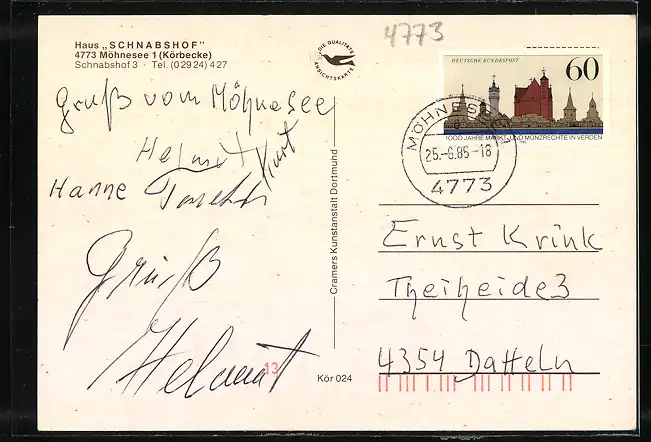 4773
Haus „SCHNABSHOF"
4773 Möhnesee 1 (Körbecke)
Schnabshof 3 · Tel. (0 29 24) 4 27
DIE QUALITÄTS
ANSICHTSKARTE
DEUTSCHE BUNDESPOST
60
1000 JAHRE MARKT- UND MÜNZRECHTE IN VERDEN
MÖHNESEE
25.-6.85-18
4773
Gruß vom Möhnesee
Helmut Kurt
Hanne
Gruß
Helmut
13
Cramers Kunstanstalt Dortmund
Kör 024
Ernst Krink
Theiheide 3
4354 Datteln